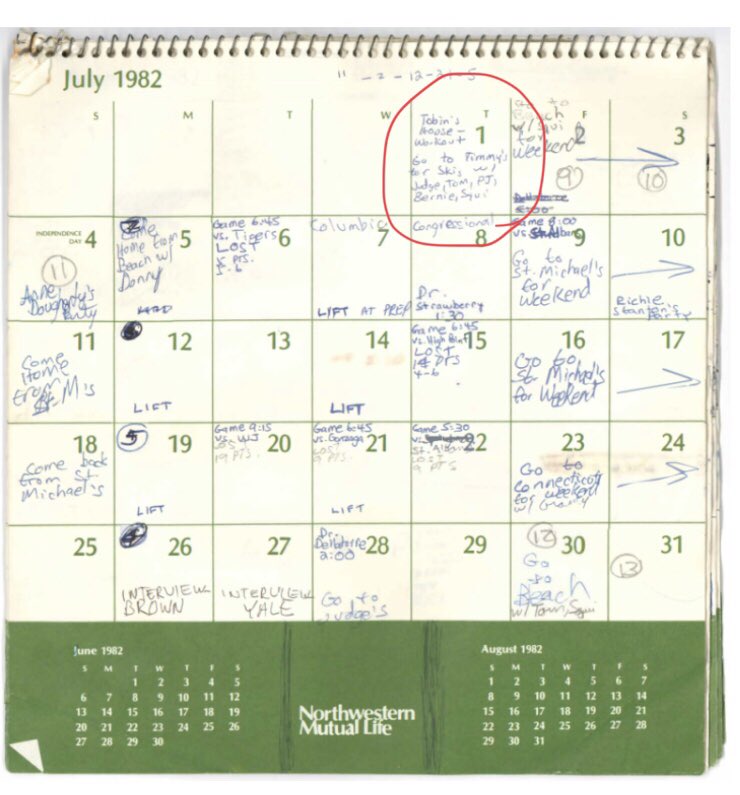 July 1982
S M T W T F S
Tobin's
House -
Workout
1
Go to Timmy's
for Skis w/
Judge, Tom, PJ,
Bernie, Squi
go to
Beach
w/ Squi
for
Weekend
2
9
3
10
INDEPENDENCE
DAY 4
11
Anne
Dougherty's
Party
5
Come
Home from
Beach w/
Donny
Game 6:45
vs. Tigers
6
LOST
5-6
7
LIFT AT PREP
Congressional
8
Dr.
Strawberry
1:30
Game 8:00
vs.
9
Go to
St. Michael's
for
Weekend
10
Richie
Stanton's
Party
11
Come
Home
from
St. M's
12
LIFT
13
14
LIFT
Game 6:45
15
LOST
14 PTS
4-6
16
Go to
St. Michael's
for Weekend
17
18
Come back
from St.
Michael's
5
19
LIFT
Game 9:15
vs. WJ
20
LOST
19 PTS.
Game 6:45
vs. Gonzaga
21
LOST
LIFT
Game 5:30
vs.
22
St. Albans
LOST
9 PTS
23
Go to
Connecticut
for weekend
w/ Grammy
24
25
26
INTERVIEW
BROWN
27
INTERVIEW
YALE
Dr.
28
2:00
Go to
Judge's
29
12
30
Go
to
Beach
w/ Tom, Squi
31
13
June 1982
S M T W T F S
1 2 3 4 5
6 7 8 9 10 11 12
13 14 15 16 17 18 19
20 21 22 23 24 25 26
27 28 29 30
Northwestern
Mutual Life
August 1982
S M T W T F S
1 2 3 4 5 6 7
8 9 10 11 12 13 14
15 16 17 18 19 20 21
22 23 24 25 26 27 28
29 30 31